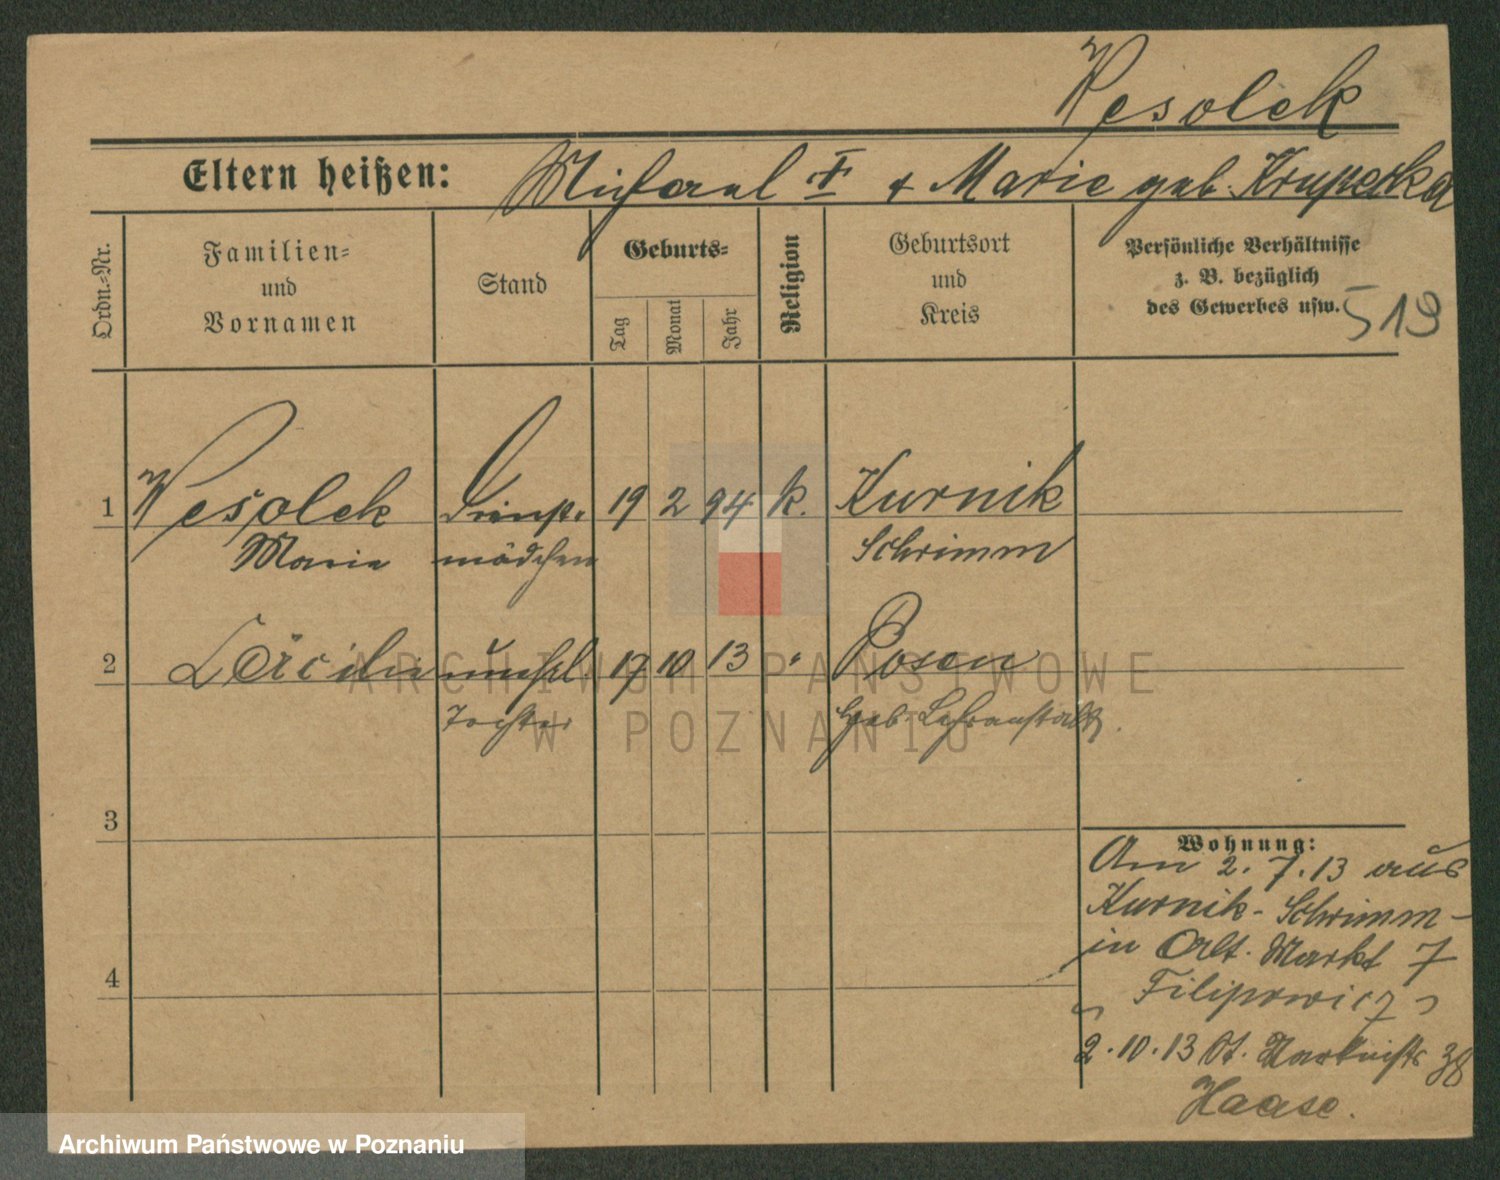 Wesolek
Eltern heißen: Michael † & Marie geb. Krupecka
Ordn.-Nr.
Familien-
und
Vornamen
Stand
Geburts-
Tag
Monat
Jahr
Religion
Geburtsort
und
Kreis
Persönliche Verhältnisse
z. B. bezüglich
des Gewerbes usw.
519
1 Wesolek Dienst- 19 2 94 k. Kurnik
Marie mädchen Schrimm
2 Cäcilie unehel. 17 10 13 " Posen
Tochter Geb. Lehranstalt.
3
4
Wohnung:
Am 2.7.13 aus
Kurnik-Schrimm-
in Alt. Markt 7
Filipowicz
2.10.13 St. 38
Haase.
ARCHIWUM PAŃSTWOWE
W POZNANIU
Archiwum Państwowe w Poznaniu